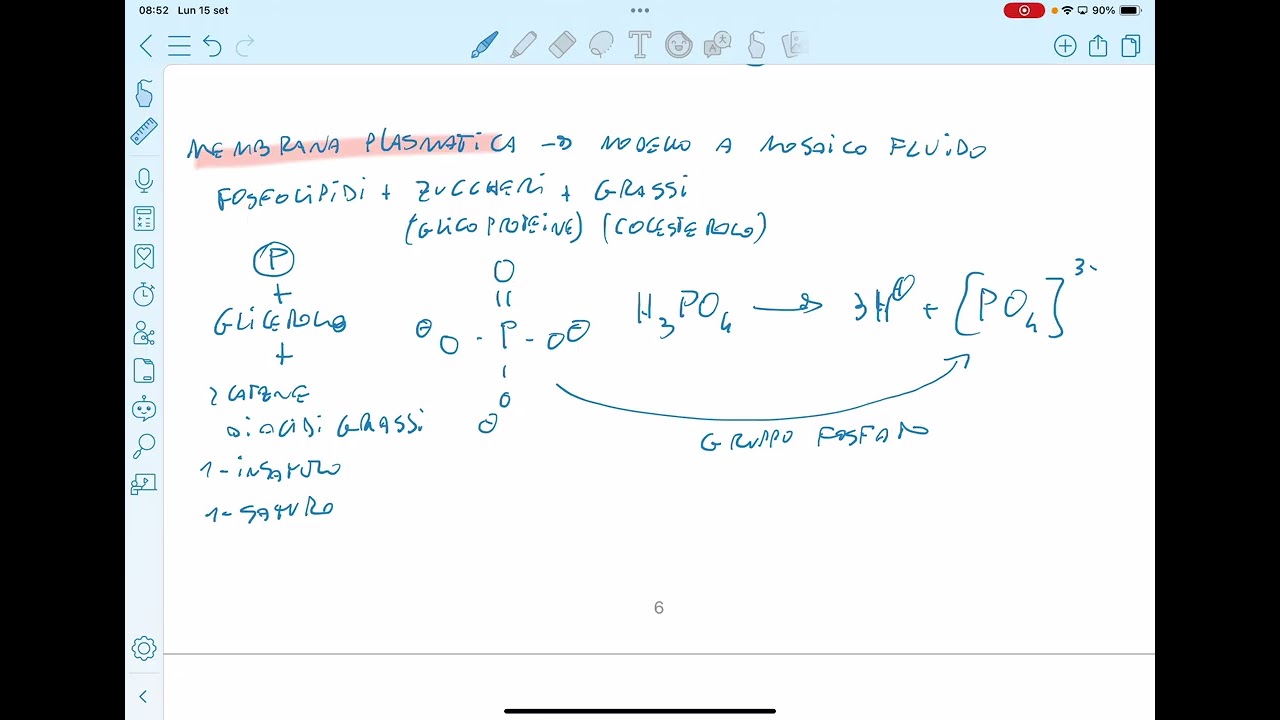 08:52 Lun 15 set
90%
MEMBRANA PLASMATICA → MODELLO A MOSAICO FLUIDO
FOSFOLIPIDI + ZUCCHERI + GRASSI
(GLICOPROTEINE) (COLESTEROLO)
P
+
GLICEROLO
+
2 CATENE
DI ACIDI GRASSI
1 - INSATURO
1 - SATURO
O
||
⊖O - P - O⊖
|
O
⊖
H₃PO₄ → 3H⊕ + [PO₄]³⁻
GRUPPO FOSFATO
6